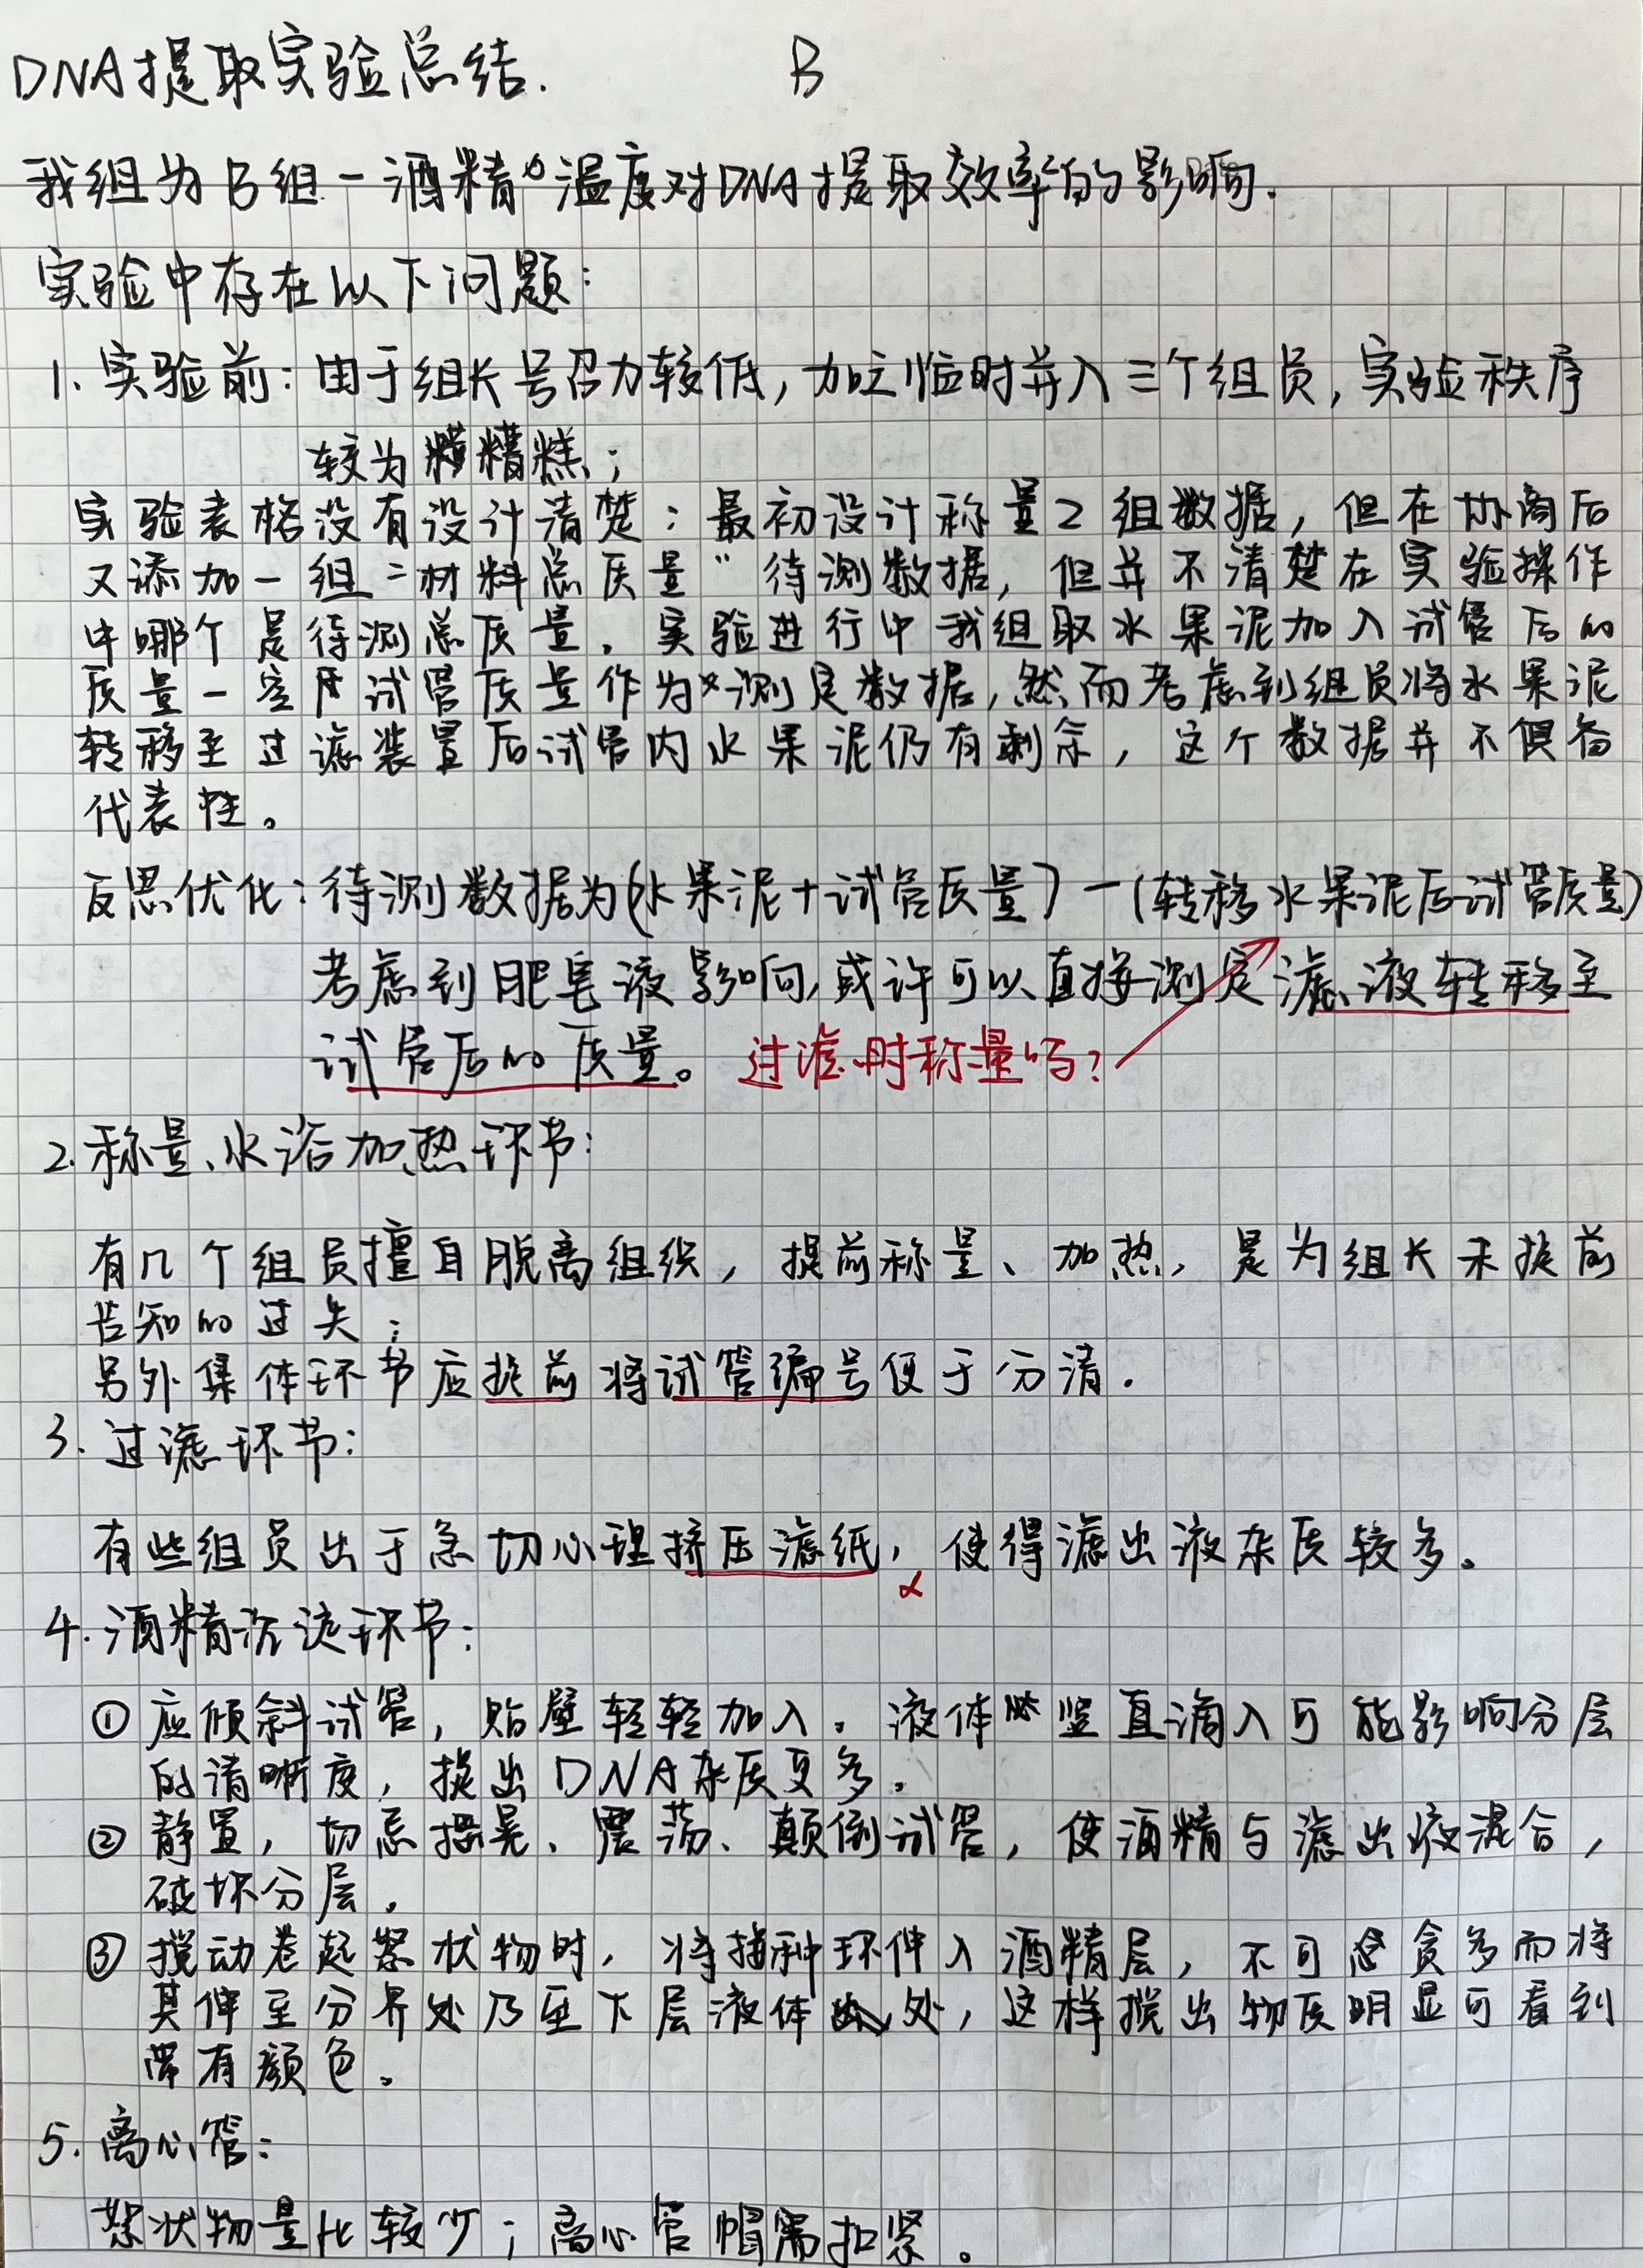 DNA提取实验总结. B
我组为B组-酒精温度对DNA提取效率的影响.
实验中存在以下问题:
1. 实验前: 由于组长号召力较低, 加之临时并入三个组员, 实验秩序
较为糟糕;
实验表格没有设计清楚: 最初设计称量2组数据, 但在协商后
又添加一组"材料总质量"待测数据, 但并不清楚在实验操作
中哪个是待测总质量. 实验进行中我组取水果泥加入试管后的
质量-空试管质量作为测定数据, 然而考虑到组员将水果泥
转移至过滤装置后试管内水果泥仍有剩余, 这个数据并不俱备
代表性。
反思优化: 待测数据为(水果泥+试管质量)-(转移水果泥后试管质量)
考虑到肥皂液影响, 或许可以直接测定滤液转移至
试管后的质量。 过滤时称量吗?
2. 称量、水浴加热环节:
有几个组员擅自脱离组织, 提前称量、加热, 是为组长未提前
告知的过失;
另外集体环节应提前将试管编号便于分清.
3. 过滤环节:
有些组员出于急切心理挤压滤纸, 使得滤出液杂质较多。
4. 酒精沉淀环节:
① 应倾斜试管, 贴壁轻轻加入. 液体竖直滴入可能影响分层
的清晰度, 提出DNA杂质更多。
② 静置, 切忌摇晃、震荡、颠倒试管, 使酒精与滤出液混合,
破坏分层.
③ 搅动卷起絮状物时, 将接种环伸入酒精层, 不可贪多而将
其伸至分界处乃至下层液体处, 这样搅出物质明显可看到
带有颜色。
5. 离心管:
絮状物量比较少; 离心管帽需扣紧。